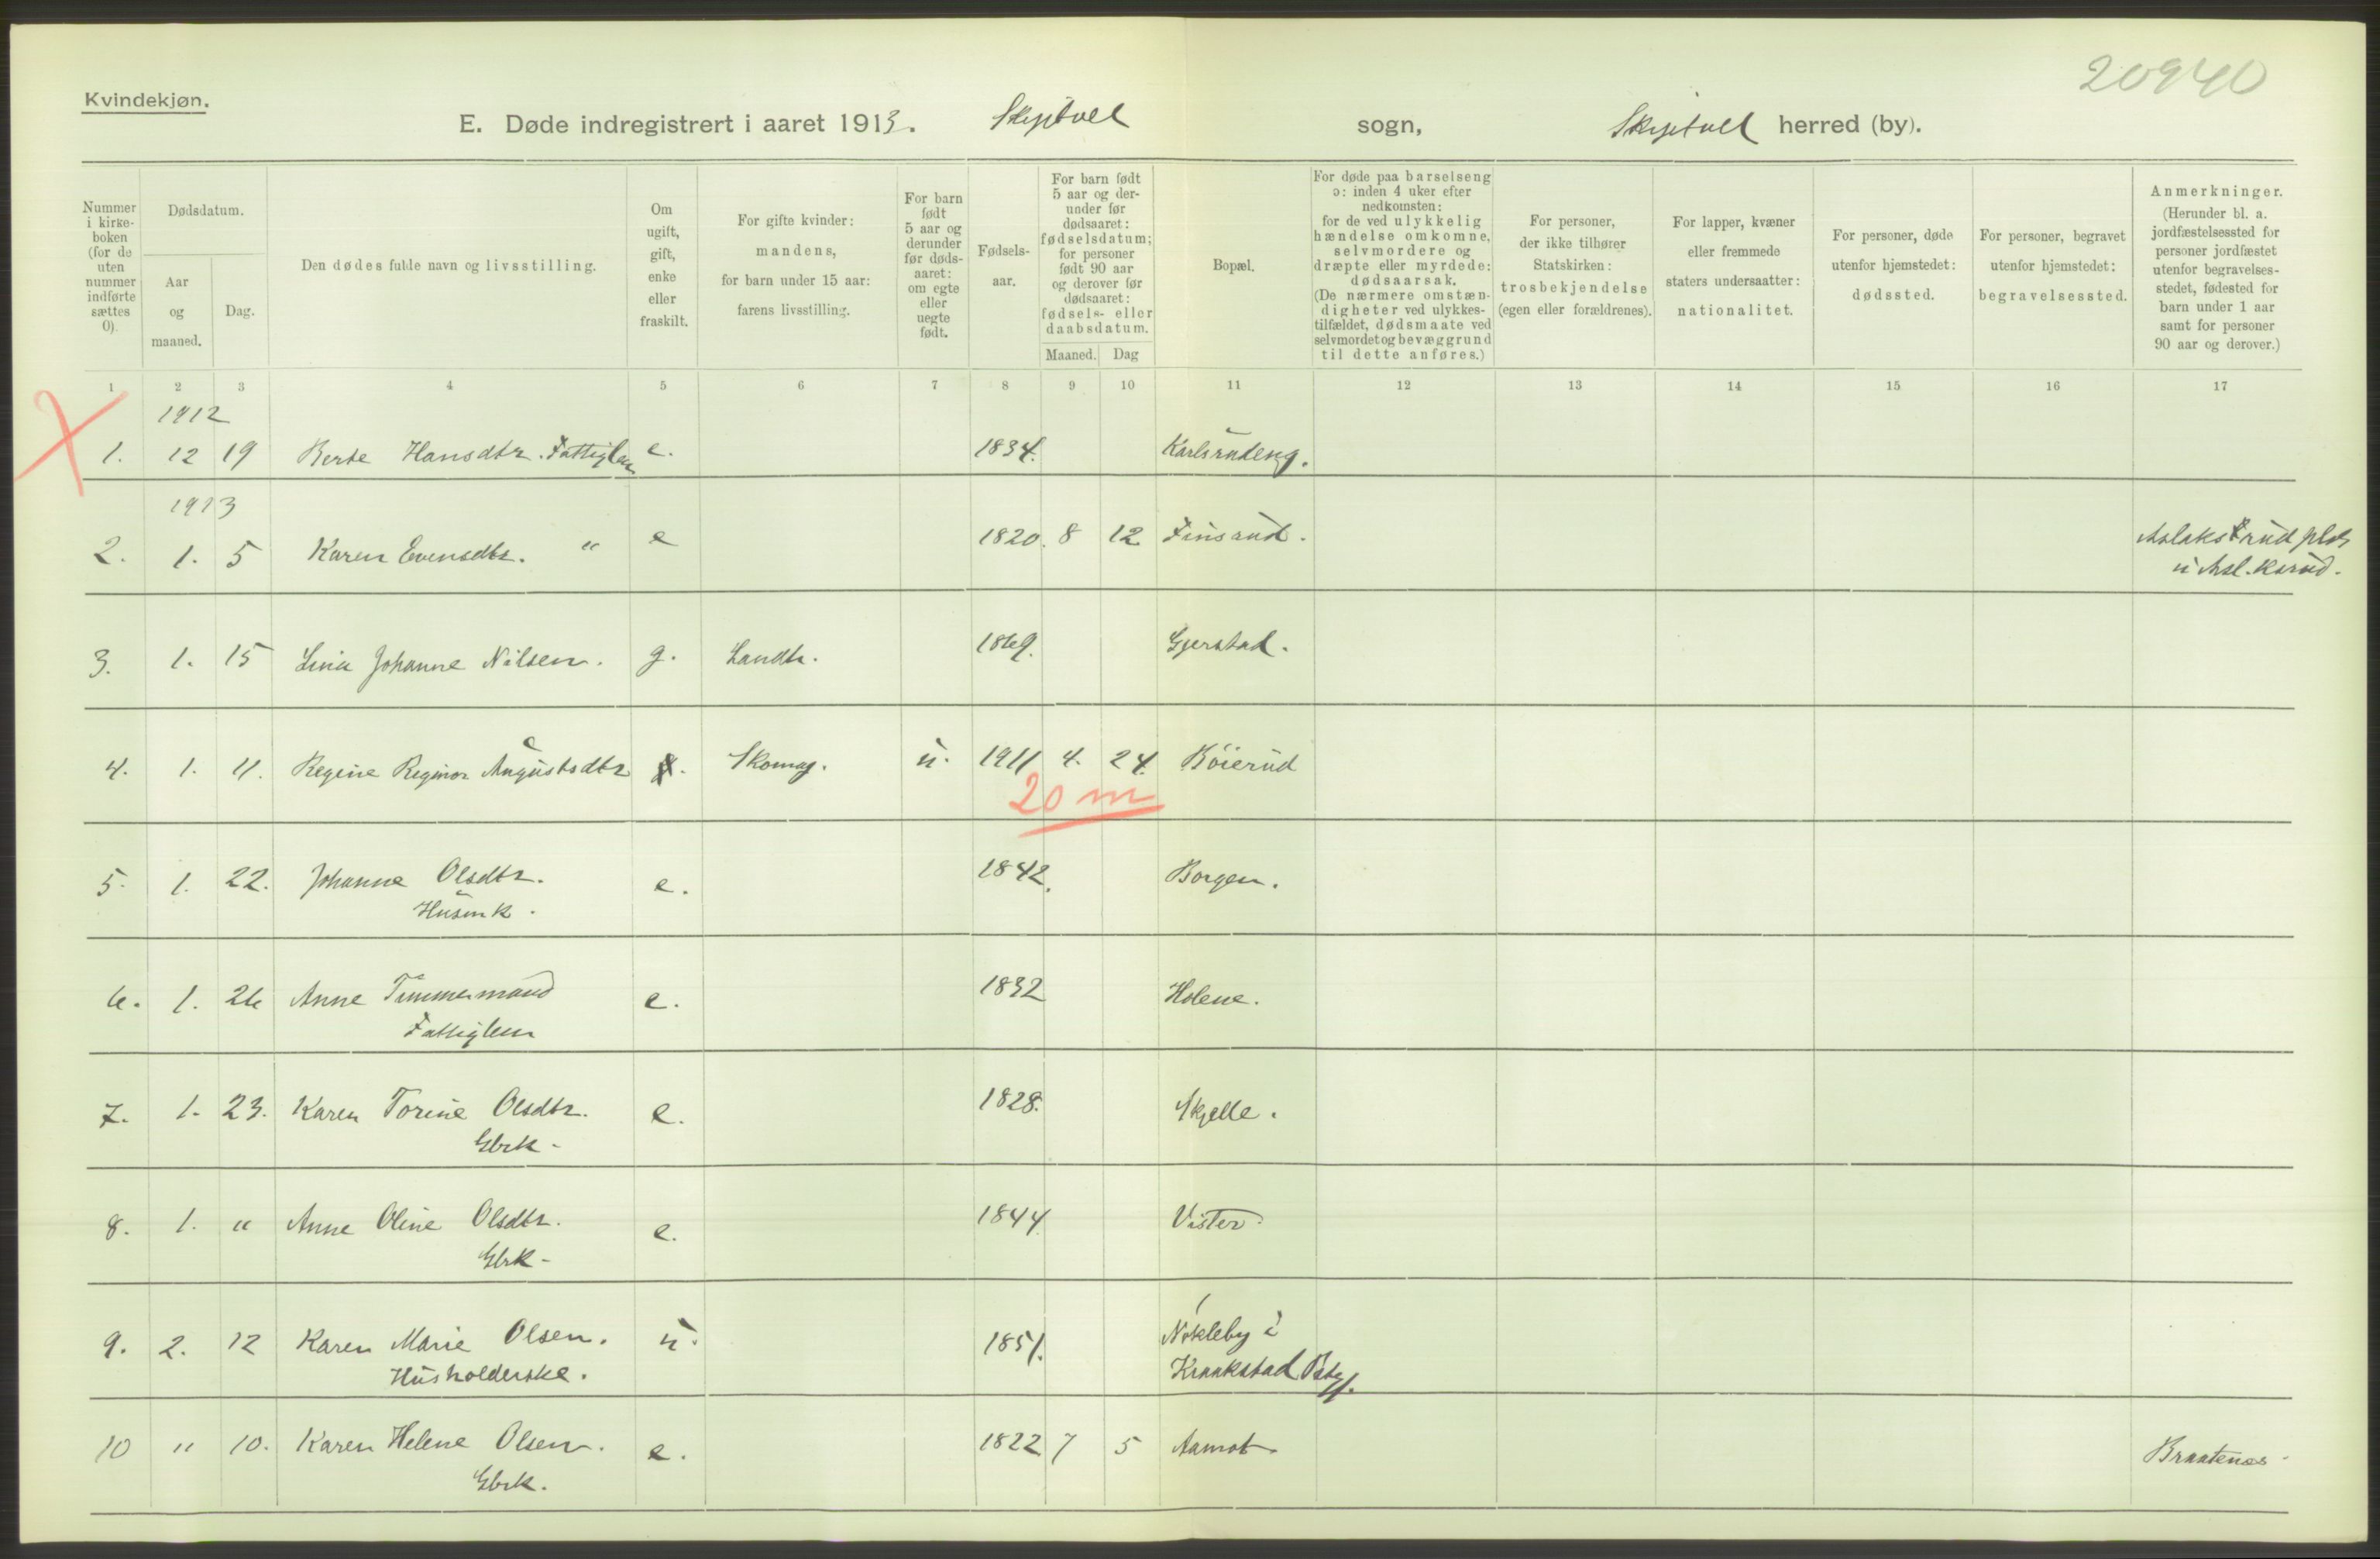 20940
Kvindekjøn.
E. Døde indregistrert i aaret 1913. Skiptvet sogn, Skiptvet herred (by).
Nummer i kirke-boken (for de uten nummer indførte sættes 0).
Dødsdatum.
Aar og maaned.
Dag.
Den dødes fulde navn og livsstilling.
Om ugift, gift, enke eller fraskilt.
For gifte kvinder: mandens, for barn under 15 aar: farens livsstilling.
For barn født 5 aar og derunder før døds-aaret: om egte eller uegte født.
Fødsels-aar.
For barn født 5 aar og der-under før dødsaaret: fødselsdatum; for personer født 90 aar og derover før dødsaaret: fødsels- eller daabsdatum.
Maaned. Dag
Bopæl.
For døde paa barselseng ɔ: inden 4 uker efter nedkomsten: for de ved ulykkelig hændelse omkomne, selvmordere og dræpte eller myrdede: dødsaarsak. (De nærmere omstæn-digheter ved ulykkes-tilfældet, dødsmaate ved selvmordet og bevæggrund til dette anføres.)
For personer, der ikke tilhører Statskirken: trosbekjendelse (egen eller forældrenes).
For lapper, kvæner eller fremmede staters undersaatter: nationalitet.
For personer, døde utenfor hjemstedet: dødssted.
For personer, begravet utenfor hjemstedet: begravelsessted.
Anmerkninger. (Herunder bl. a. jordfæstelsessted for personer jordfæstet utenfor begravelses-stedet, fødested for barn under 1 aar samt for personer 90 aar og derover.)
1 2 3 4 5 6 7 8 9 10 11 12 13 14 15 16 17
1912
1. 12 19 Berte Hansdtr. Fattiglem e. 1834. Karlsrudeng.
1913
2. 1. 5 Karen Evensdtr. " e 1820. 8 12 Finsrud. Aslaksrud plds
u Asl.ksrud.
3. 1. 15 Lina Johanne Nilsen. g. Landbr. 1869. Gjerstad.
4. 1. 11. Regine Reginor Augustsdtr Skomag. u. 1911 4. 24. Böierud
20 m
5. 1. 22. Johanne Olsdtr. e. 1842. Borgen.
Husmk.
6. 1. 26 Anne Timmermand e. 1832 Holene.
Fattiglem
7. 1. 23. Karen Torine Olsdtr. e. 1828. Skjelle.
Gbrk-
8. 1. " Anne Oline Olsdtr. e. 1844 Vister
Gbrk-
9. 2. 12 Karen Marie Olsen. u. 1851. Nökleby i
Husholderske. Kraakstad
10 " 10. Karen Helene Olsen. e. 1822 7 5 Aamot Braatenes
Gbrk.